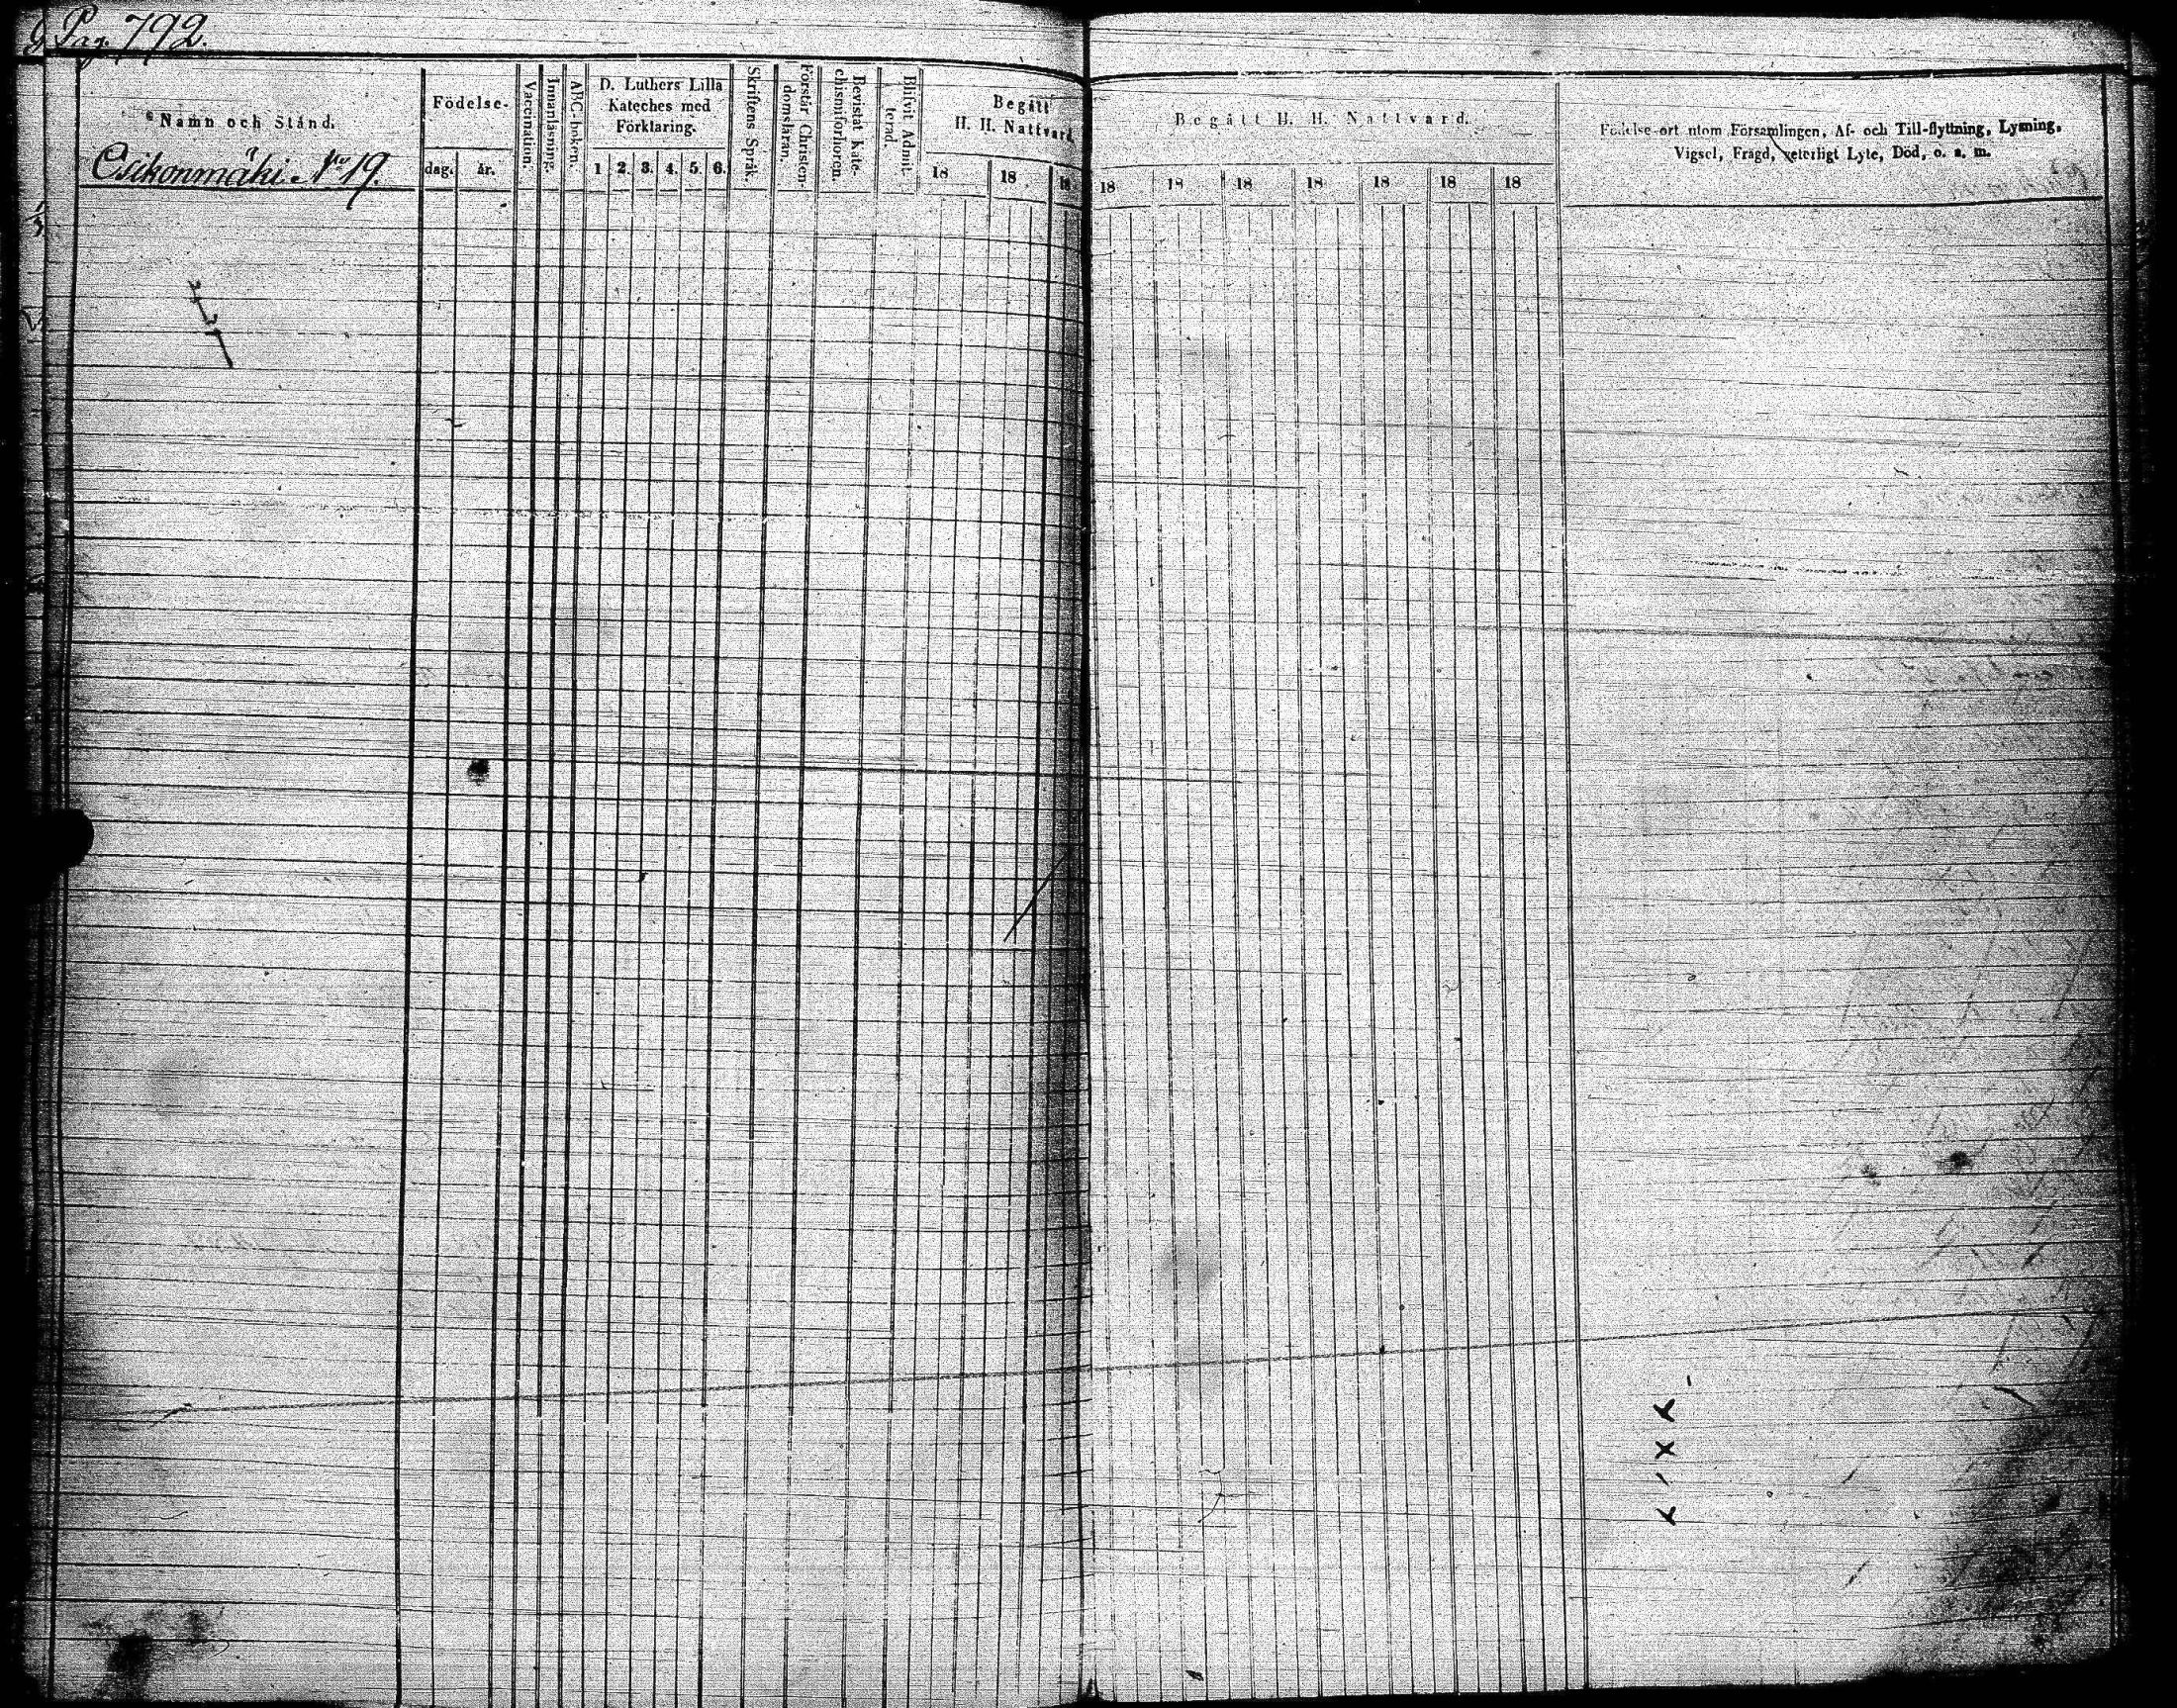 Pag. 792.
Namn och Stånd.
Esikonmäki No 19.
Födelse-
dag. år.
Vaccination.
Innanläsning.
ABC-boken.
D. Luthers Lilla
Kateches med
Förklaring.
1 2. 3. 4. 5. 6.
Skriftens Språk.
Förstår Christen-
domsläran.
Bevistat Kate-
chismiförhören.
Blifvit Admit-
terad.
Begått
H. H. Nattvard.
18 18 18
Begått H. H. Nattvard.
18 18 18 18 18 18 18
Födelse-ort utom Församlingen, Af- och Till-flyttning, Lysning,
Vigsel, Frägd, veterligt Lyte, Död, o. s. m.